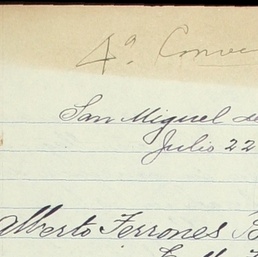 4ª Conve
San Miguel de
Julio 22
Alberto Terrones B